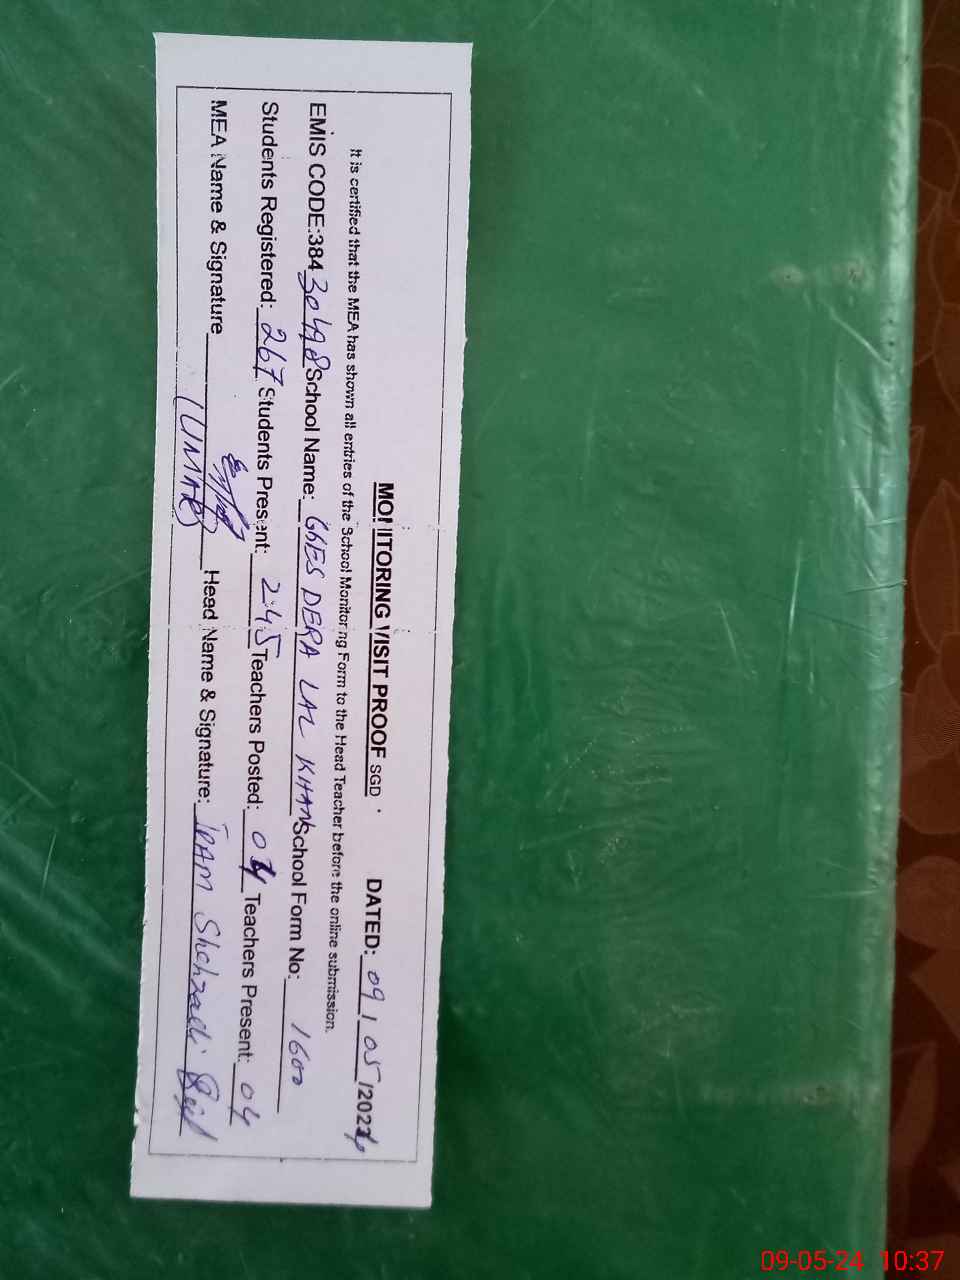 MONITORING VISIT PROOF SGD . DATED: 09/05/2024
It is certified that the MEA has shown all entries of the School Monitoring Form to the Head Teacher before the online submission.
EMIS CODE:38430498 School Name: GGES DERA LAL KHAN School Form No: 1600
Students Registered: 267 Students Present: 245 Teachers Posted: 04 Teachers Present: 04
MEA Name & Signature (UMAR) Head Name & Signature: IRAM Shehzadi
09-05-24 10:37